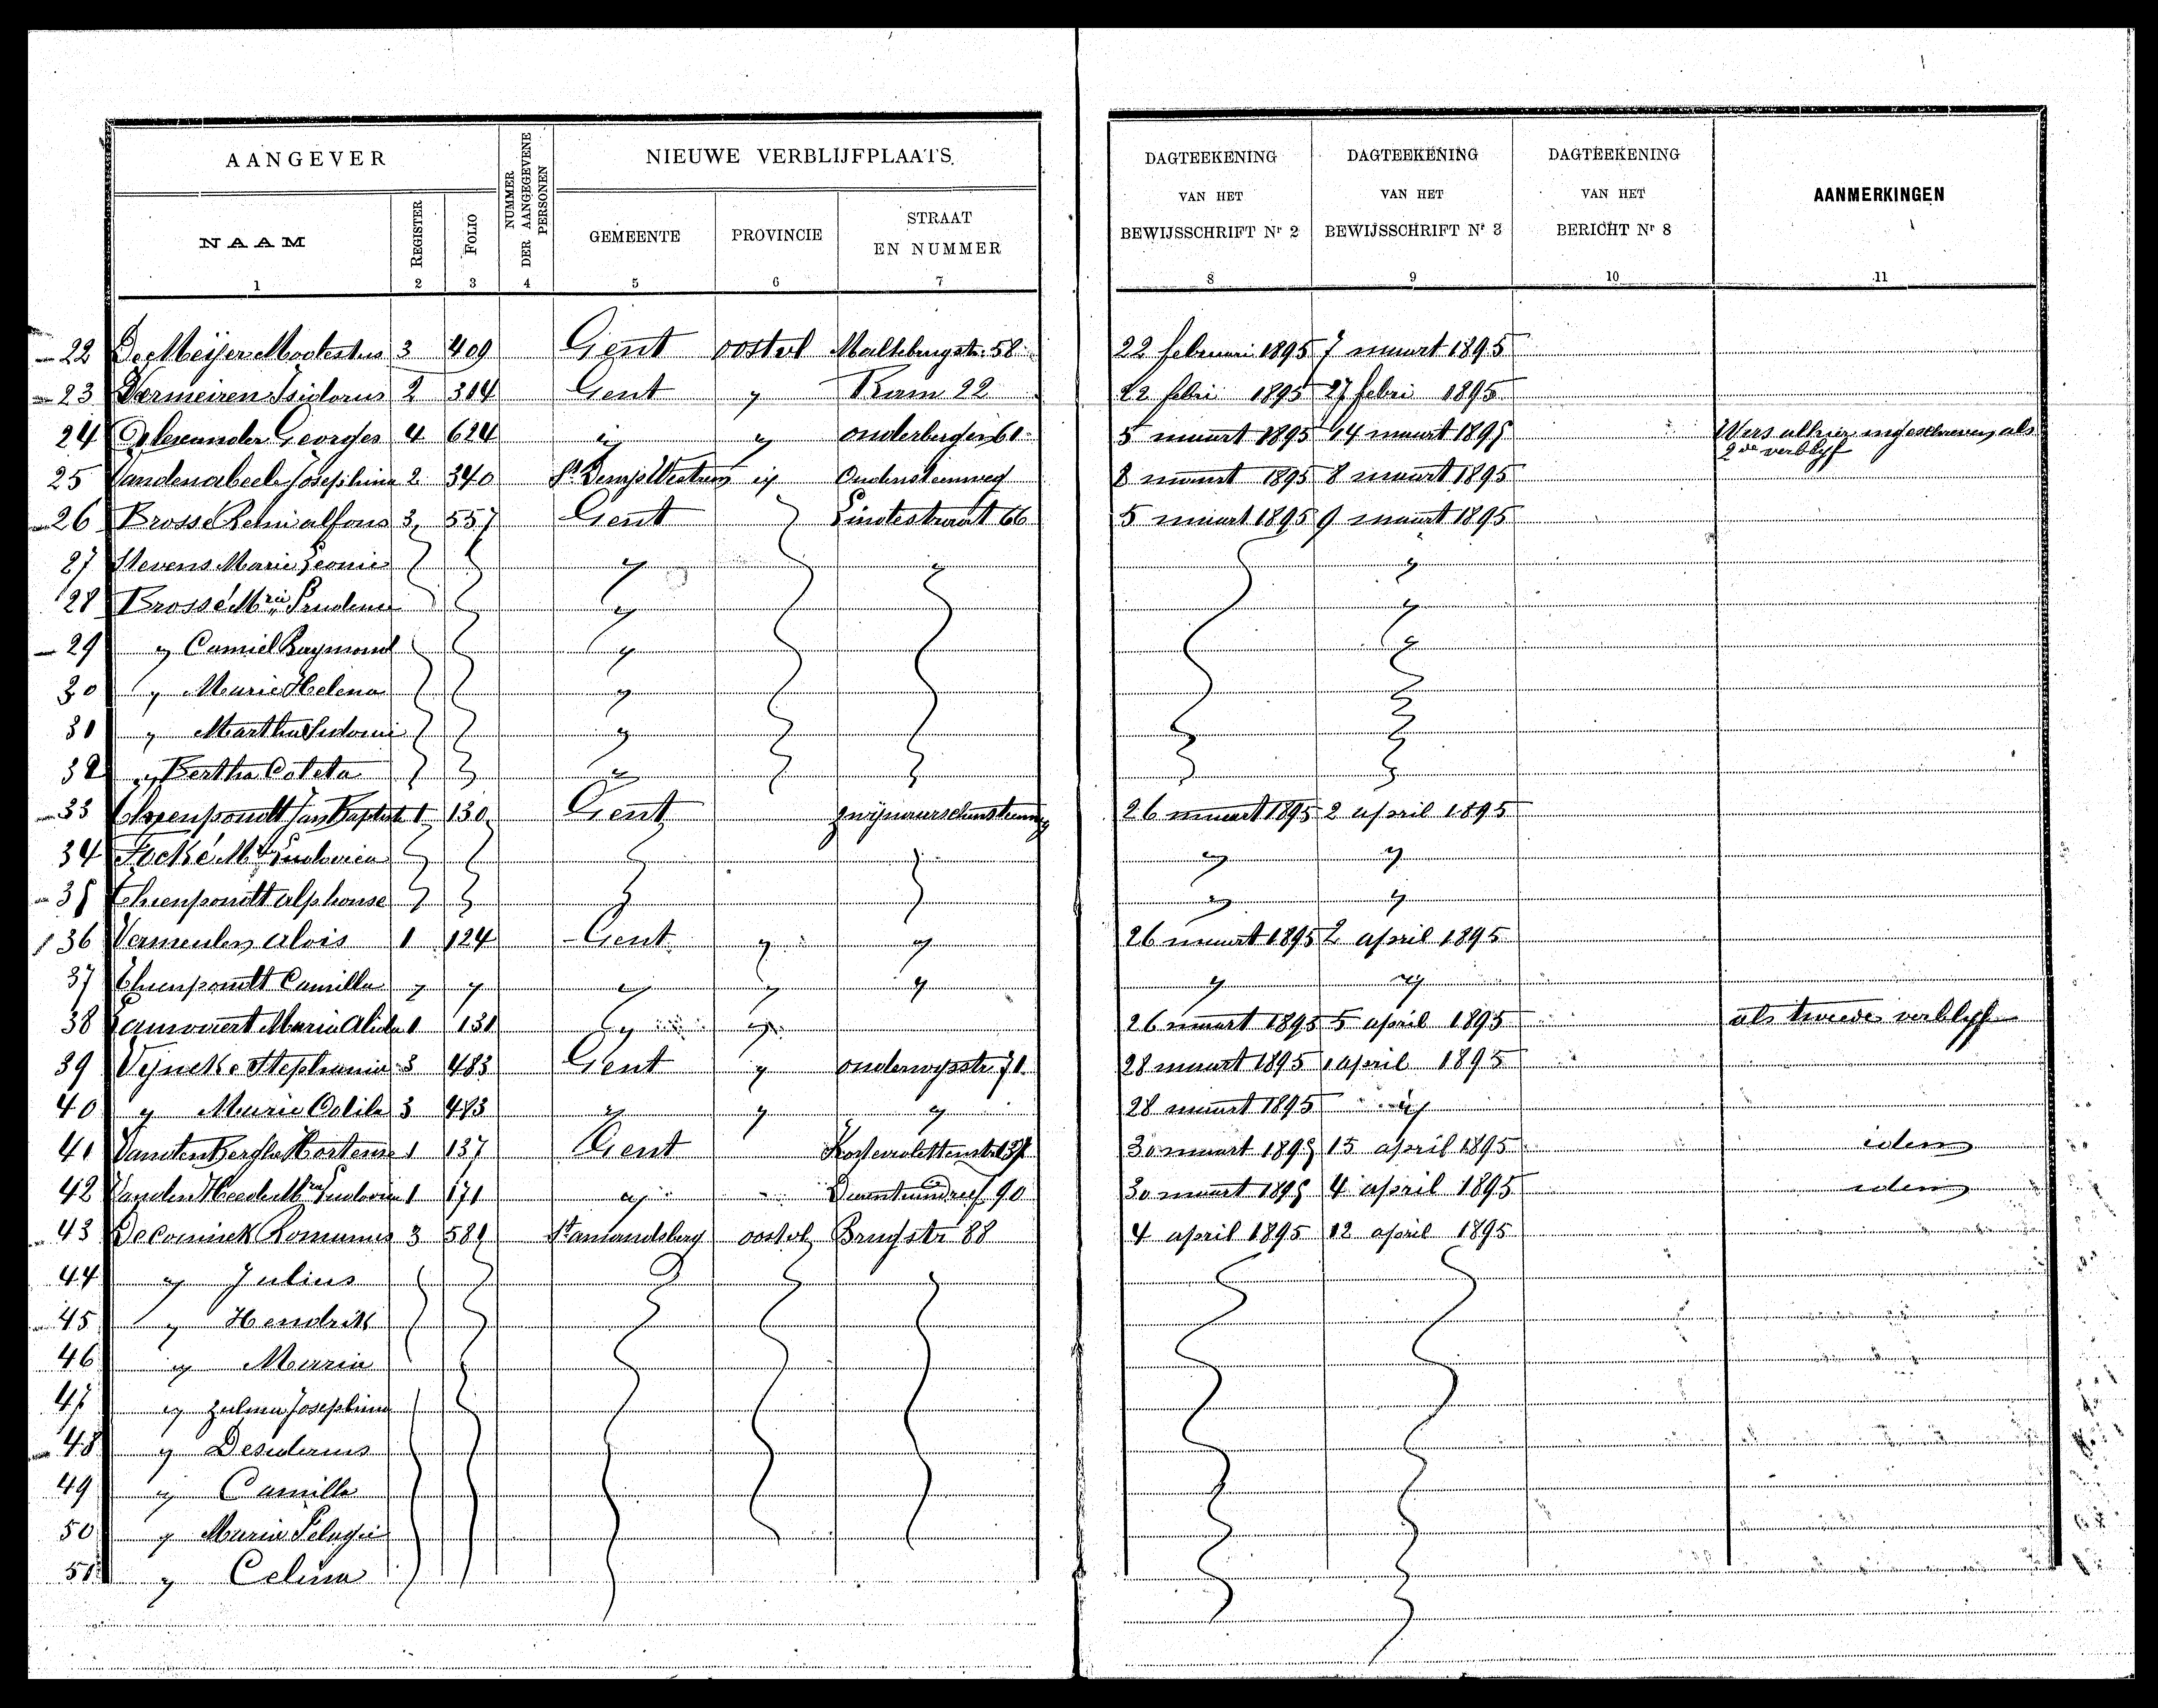 AANGEVER
NUMMER DER AANGEGEVENE PERSONEN
NIEUWE VERBLIJFPLAATS.
DAGTEEKENING VAN HET BEWIJSSCHRIFT Nr 2
DAGTEEKENING VAN HET BEWIJSSCHRIFT Nr 3
DAGTEEKENING VAN HET BERICHT Nr 8
AANMERKINGEN
NAAM
REGISTER
FOLIO
GEMEENTE
PROVINCIE
STRAAT EN NUMMER
1 2 3 4 5 6 7 8 9 10 11
22 De Meijer Modestus 3 409 Gent oostvl Maltebrugstr. 58 22 februari 1895 7 maart 1895
23 Vermeiren Isidorus 2 314 Gent " Ram 22 22 febri 1895 27 febri 1895
24 Alexander Georges 4 624 " " onderbergen 61 5 maart 1895 14 maart 1895 Wers alhier ingeschreven als
2de verblyf
25 Vandenabeele Josephina 2 340 St Denys Westrem " 8 maart 1895 8 maart 1895
26 Brosse Remi alfons 3 557 Gent Lindestraat 66 5 maart 1895 9 maart 1895
27 Stevens Marie Leonie " " "
28 Brossé Mrie Prudence " "
29 " Camiel Raymond " "
30 " Marie Helena "
31 " Martha Sidonie "
32 " Bertha Coleta "
33 Jan Baptist 1 130 Gent 26 maart 1895 2 april 1895
34 Focké Ludovica " "
35 alphonse " "
36 Vermeulen Alois 1 124 Gent " " 26 maart 1895 2 april 1895
37 Camilla " " " " " " "
38 Maria Alida 1 131 " " 26 maart 1895 5 april 1895 als tweede verblyf
39 Vyncke Stephanie 3 483 Gent " onderwysstr. 71 28 maart 1895 1 april 1895
40 " Marie Odile 3 483 " " " 28 maart 1895 "
41 Vanden Berghe Hortense 1 137 Gent 30 maart 1895 15 april 1895 idem
42 Vanden Heede Mria Ludovica 1 171 " 90 30 maart 1895 4 april 1895 idem
43 De Coninck Romanus 3 581 St amandsberg oostvl Brugstr 88 4 april 1895 12 april 1895
44 " Julius
45 " Hendrik
46 " Maria
47 " Zulma Josephina
48 " Desiderius
49 " Camilla
50 " Maria Pelagie
51 " Celina